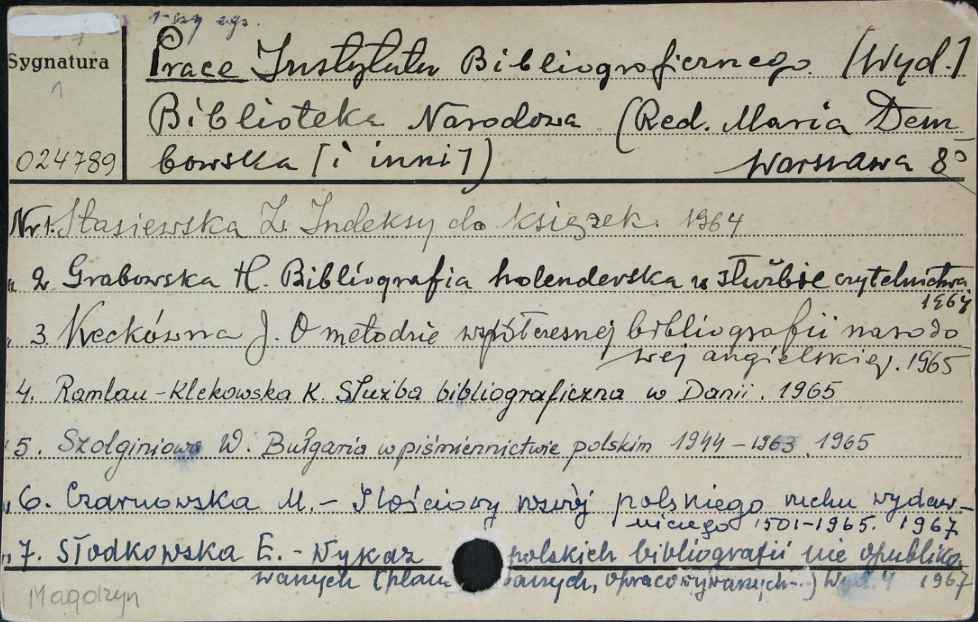 1-szy egz.
Sygnatura
1
024789
Prace Instytutu Bibliograficznego. [Wyd.]
Biblioteka Narodowa (Red. Maria Dem
bowska [i inni]) Warszawa 8°
Nr 1. Stasiewska Z. Indeksy do książek. 1964
" 2. Grabowska H. Bibliografia holenderska w służbie czytelnictwa
1964
" 3. Keckówna J. O metodzie współczesnej bibliografii narodo
wej angielskiej. 1965
" 4. Ramlau-Klekowska K. Służba bibliograficzna w Danii. 1965
" 5. Szolginiowa W. Bułgaria w piśmiennictwie polskim 1944-1963. 1965
" 6. Czarnowska M. - Ilościowy rozwój polskiego ruchu wydaw-
niczego 1501-1965. 1967
" 7. Słodkowska E. - Wykaz polskich bibliografii nie opubliko
wanych (planowanych, opracowywanych...) Wyd. 4 1967
Magazyn